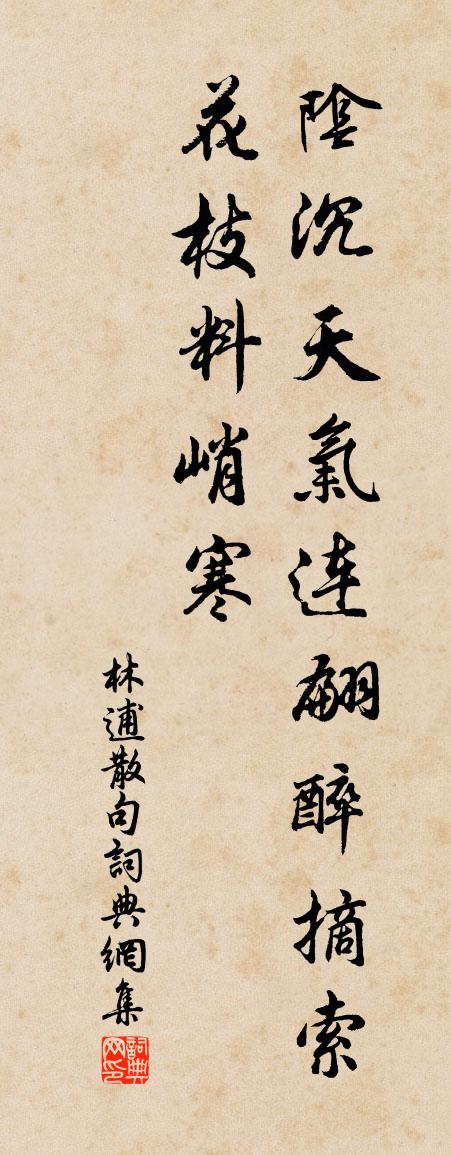 陰沉天氣連翩醉摘索
花枝料峭寒
林逋散句詞典網集
詞典網印